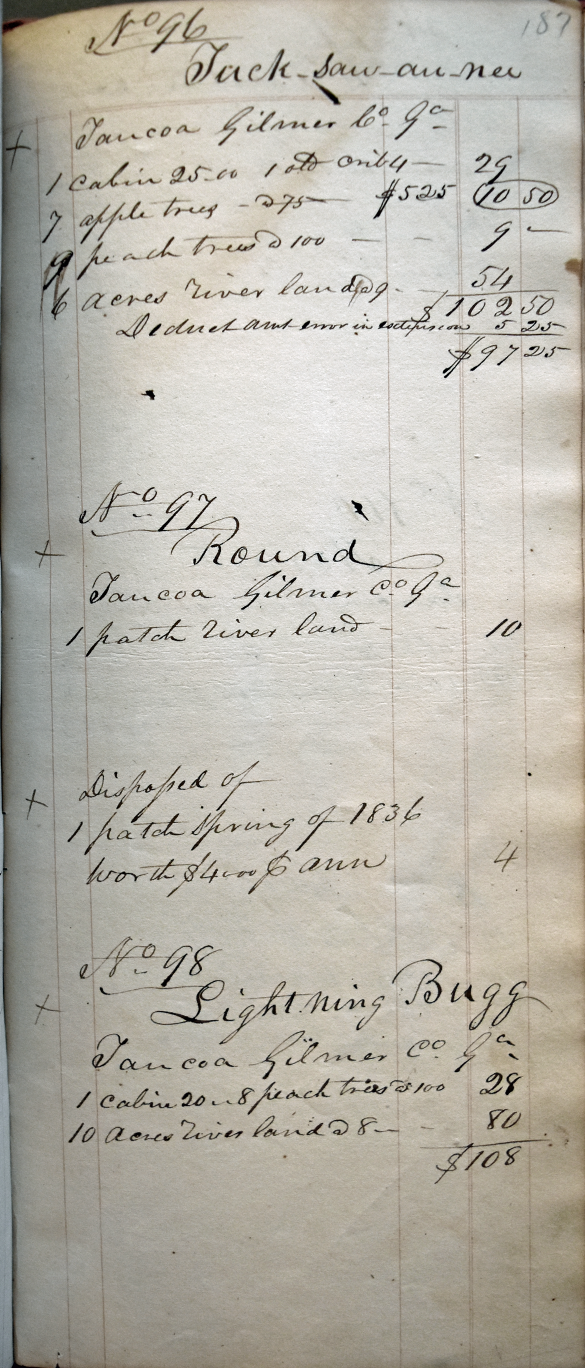 187
No 96
Tuck-saw-au-nee
+ Taucoa Gilmer Co Ga
1 cabin 25.00 1 old crib 4 — 29
7 apple trees - @ 75 — $525 10 50
9 peach trees @ 100 — - 9 —
6 acres river land @ 9 - 54
$102 50
Deduct amt error in extension 5 25
$97 25
No 97
+ Round
Taucoa Gilmer Co Ga
1 patch river land - - 10
+ Disposed of
1 patch spring of 1836
worth $4.00 ⅌ ann 4
No 98
+ Lightning Bugg
Taucoa Gilmer Co Ga
1 cabin 20 — 8 peach trees @ 100 28
10 acres river land @ 8 — - 80
$108